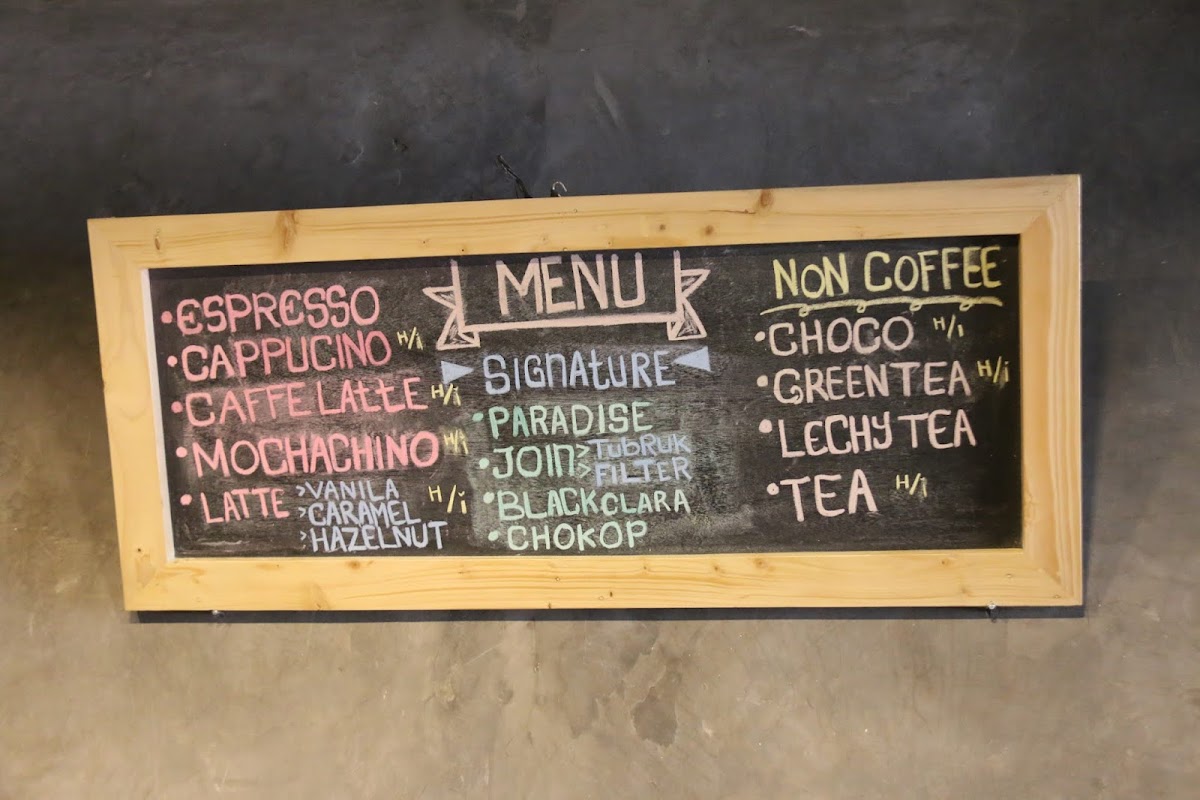 MENU
ESPRESSO
CAPPUCINO H/i
CAFFE LATTE H/i
MOCHACHINO H/i
LATTE >VANILA H/i
>CARAMEL
>HAZELNUT
SIGNATURE
PARADISE
JOIN >TUBRUK
>FILTER
BLACK CLARA
CHOKOP
NON COFFEE
CHOCO H/i
GREEN TEA H/i
LECHY TEA
TEA H/i